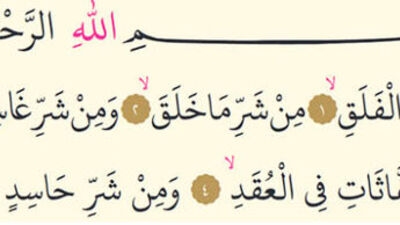 ـمِ اللهِ الرَّحْ
الْفَلَقِۙ ١ مِنْ شَرِّ مَا خَلَقَۙ ٢ وَمِنْ شَرِّ غَاسِ
فَّاثَاتِ فِى الْعُقَدِۙ ٤ وَمِنْ شَرِّ حَاسِدٍ